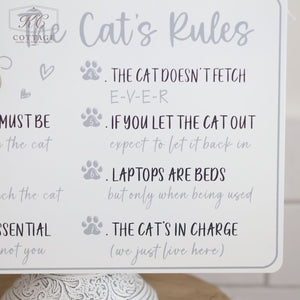 KG
COTTAGE
The Cat's Rules
. THE CAT DOESN'T FETCH
E-V-E-R
MUST BE
the cat
. IF YOU LET THE CAT OUT
expect to let it back in
. LAPTOPS ARE BEDS
ch the cat
but only when being used
SSENTIAL
not you
. THE CAT'S IN CHARGE
(we just live here)